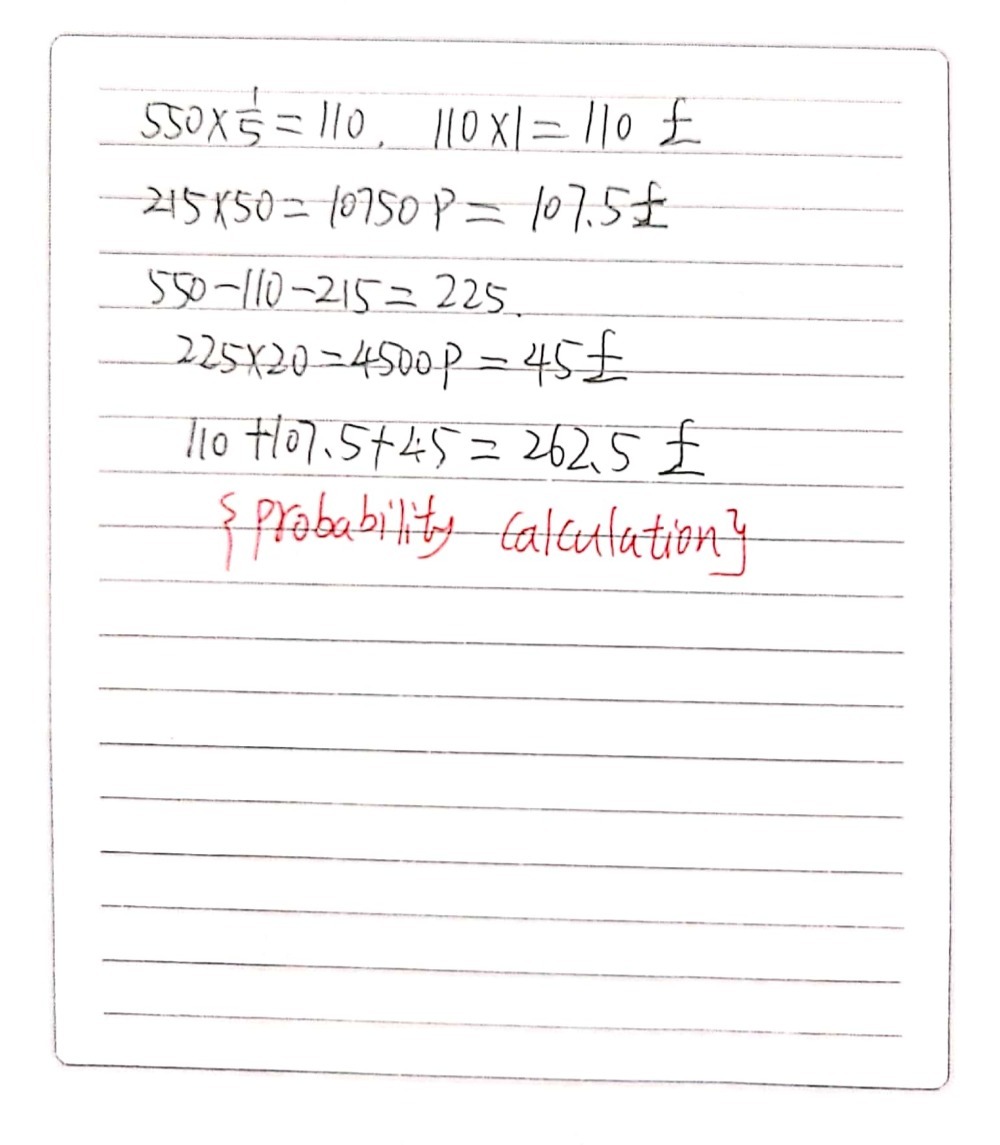 550×1/5=110, 110×1=110 £
215×50=10750P=107.5£
550-110-215=225.
225×20=4500P=45£
110+107.5+45=262.5 £
{probability calculation}